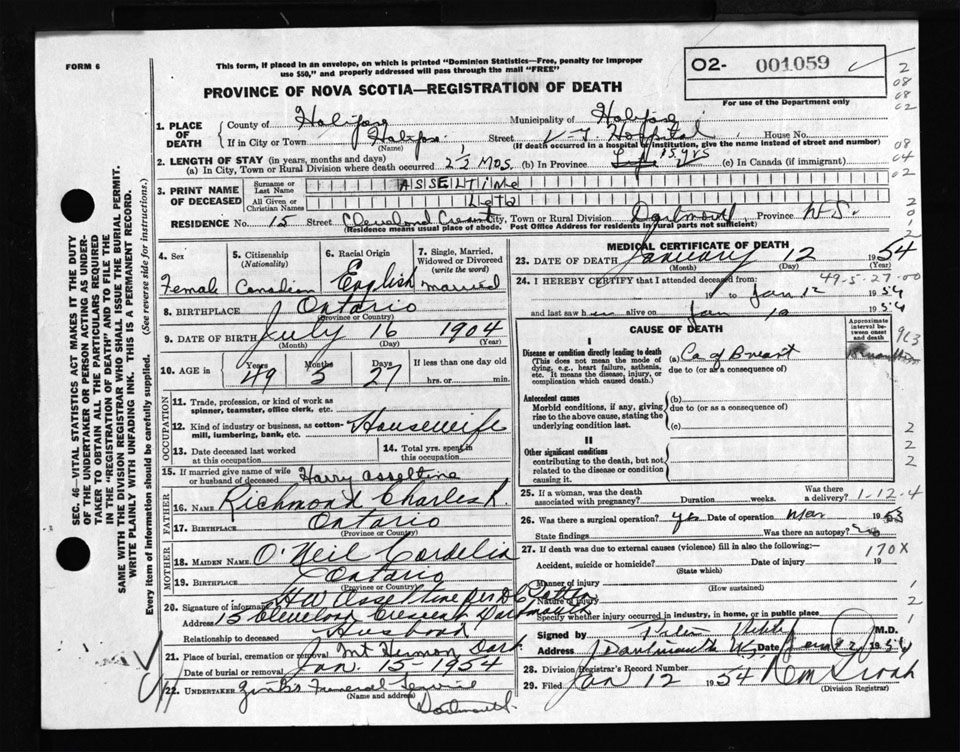 FORM 6
This form, if placed in an envelope, on which is printed "Dominion Statistics—Free, penalty for improper
use $50," and properly addressed will pass through the mail "FREE"
PROVINCE OF NOVA SCOTIA—REGISTRATION OF DEATH
O2- 001059
For use of the Department only
1. PLACE OF DEATH
County of Halifax Municipality of Halifax
If in City or Town Halifax Street V.G. Hospital House No.
(Name) (If death occurred in a hospital or institution, give the name instead of street and number)
2. LENGTH OF STAY (in years, months and days)
(a) In City, Town or Rural Division where death occurred 2 1/2 Mos. (b) In Province 15 yrs (c) In Canada (if immigrant)
3. PRINT NAME OF DECEASED
Surname or Last Name ASSELTINE
All Given or Christian Names Leta
RESIDENCE No. 15 Street Cleveland Crescent City, Town or Rural Division Dartmouth Province N.S.
(Residence means usual place of abode. Post Office Address for residents in rural parts not sufficient)
4. Sex Female
5. Citizenship (Nationality) Canadian
6. Racial Origin English
7. Single, Married, Widowed or Divorced (write the word) Married
8. BIRTHPLACE Ontario
(Province or Country)
9. DATE OF BIRTH July 16 1904
(Month) (Day) (Year)
10. AGE in Years 49 Months 5 Days 27 If less than one day old hrs. or min.
OCCUPATION
11. Trade, profession, or kind of work as spinner, teamster, office clerk, etc.
12. Kind of industry or business, as cotton-mill, lumbering, bank, etc. Housewife
13. Date deceased last worked at this occupation
14. Total yrs. spent in this occupation
15. If married give name of wife or husband of deceased Harry Asseltine
FATHER
16. NAME Richmond Charles R.
17. BIRTHPLACE Ontario
(Province or Country)
MOTHER
18. MAIDEN NAME O'Neil Cordelia
19. BIRTHPLACE Ontario
(Province or Country)
20. Signature of informant H W Asseltine
Address 15 Cleveland Crescent Dartmouth
Relationship to deceased Husband
21. Place of burial, cremation or removal Mt Hermon Dart
Date of burial or removal Jan. 15 - 1954
22. UNDERTAKER Funeral Service
(Name and address)
Dartmouth.
MEDICAL CERTIFICATE OF DEATH
23. DATE OF DEATH January 12 1954
(Month) (Day) (Year)
49-5-27-00
24. I HEREBY CERTIFY that I attended deceased from:
19 to Jan 12 1954
and last saw h alive on Jan 10 1954
CAUSE OF DEATH
Approximate interval between onset and death
I
Disease or condition directly leading to death
(This does not mean the mode of dying, e.g., heart failure, asthenia, etc. It means the disease, injury, or complication which caused death.)
(a) Ca of Breast
due to (or as a consequence of)
Antecedent causes
Morbid conditions, if any, giving rise to the above cause, stating the underlying condition last.
(b)
due to (or as a consequence of)
(c)
II
Other significant conditions
contributing to the death, but not related to the disease or condition causing it.
25. If a woman, was the death associated with pregnancy? Duration weeks. Was there a delivery? 1-12-4
26. Was there a surgical operation? yes Date of operation 1953
State findings Was there an autopsy?
27. If death was due to external causes (violence) fill in also the following:— 170X
Accident, suicide or homicide? Date of injury 19
(State which)
Manner of injury
(How sustained)
Nature of injury
Specify whether injury occurred in industry, in home, or in public place
Signed by M.D.
Address Dartmouth N.S. Date 1954
28. Division Registrar's Record Number
29. Filed Jan 12 1954
(Division Registrar)
SEC. 46—VITAL STATISTICS ACT MAKES IT THE DUTY
OF THE UNDERTAKER OR PERSON ACTING AS UNDER-
TAKER TO OBTAIN ALL THE PARTICULARS REQUIRED
IN THE "REGISTRATION OF DEATH" AND TO FILE THE
SAME WITH THE DIVISION REGISTRAR WHO SHALL ISSUE THE BURIAL PERMIT.
WRITE PLAINLY WITH UNFADING INK. THIS IS A PERMANENT RECORD.
Every item of information should be carefully supplied. (See reverse side for instructions.)